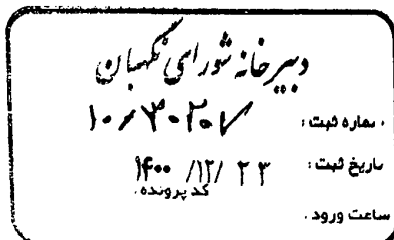 دبیرخانه شورای نگهبان
شماره ثبت : ۱۰۲/۳۰۲۰۷
تاریخ ثبت : ۱۴۰۰/۱۲/۲۳
کد پرونده .
ساعت ورود .